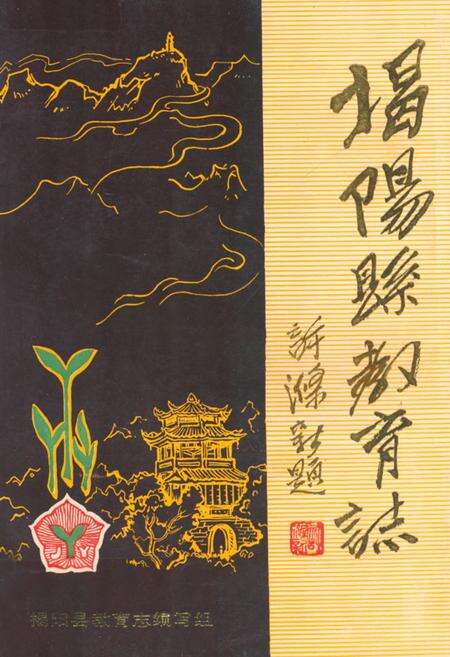 揭陽縣教育誌
許滌新題
揭阳县教育志编写组